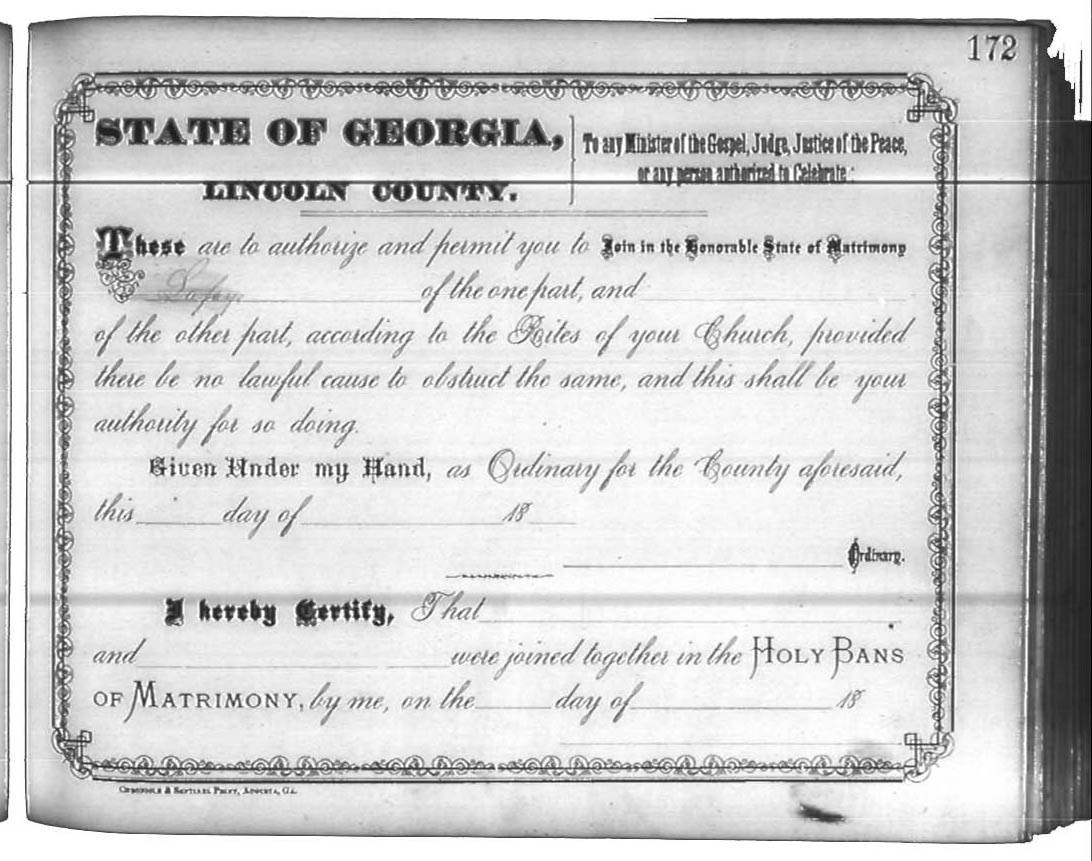 172
STATE OF GEORGIA,
LINCOLN COUNTY.
To any Minister of the Gospel, Judge, Justice of the Peace,
or any person authorized to Celebrate:
These are to authorize and permit you to Join in the Honorable State of Matrimony
of the one part, and
of the other part, according to the Rites of your Church, provided
there be no lawful cause to obstruct the same, and this shall be your
authority for so doing.
Given Under my Hand, as Ordinary for the County aforesaid,
this day of 18
Ordinary.
I hereby Certify, That
and were joined together in the HOLY BANS
OF MATRIMONY, by me, on the day of 18
CHRONICLE & SENTINEL PRINT, AUGUSTA, GA.